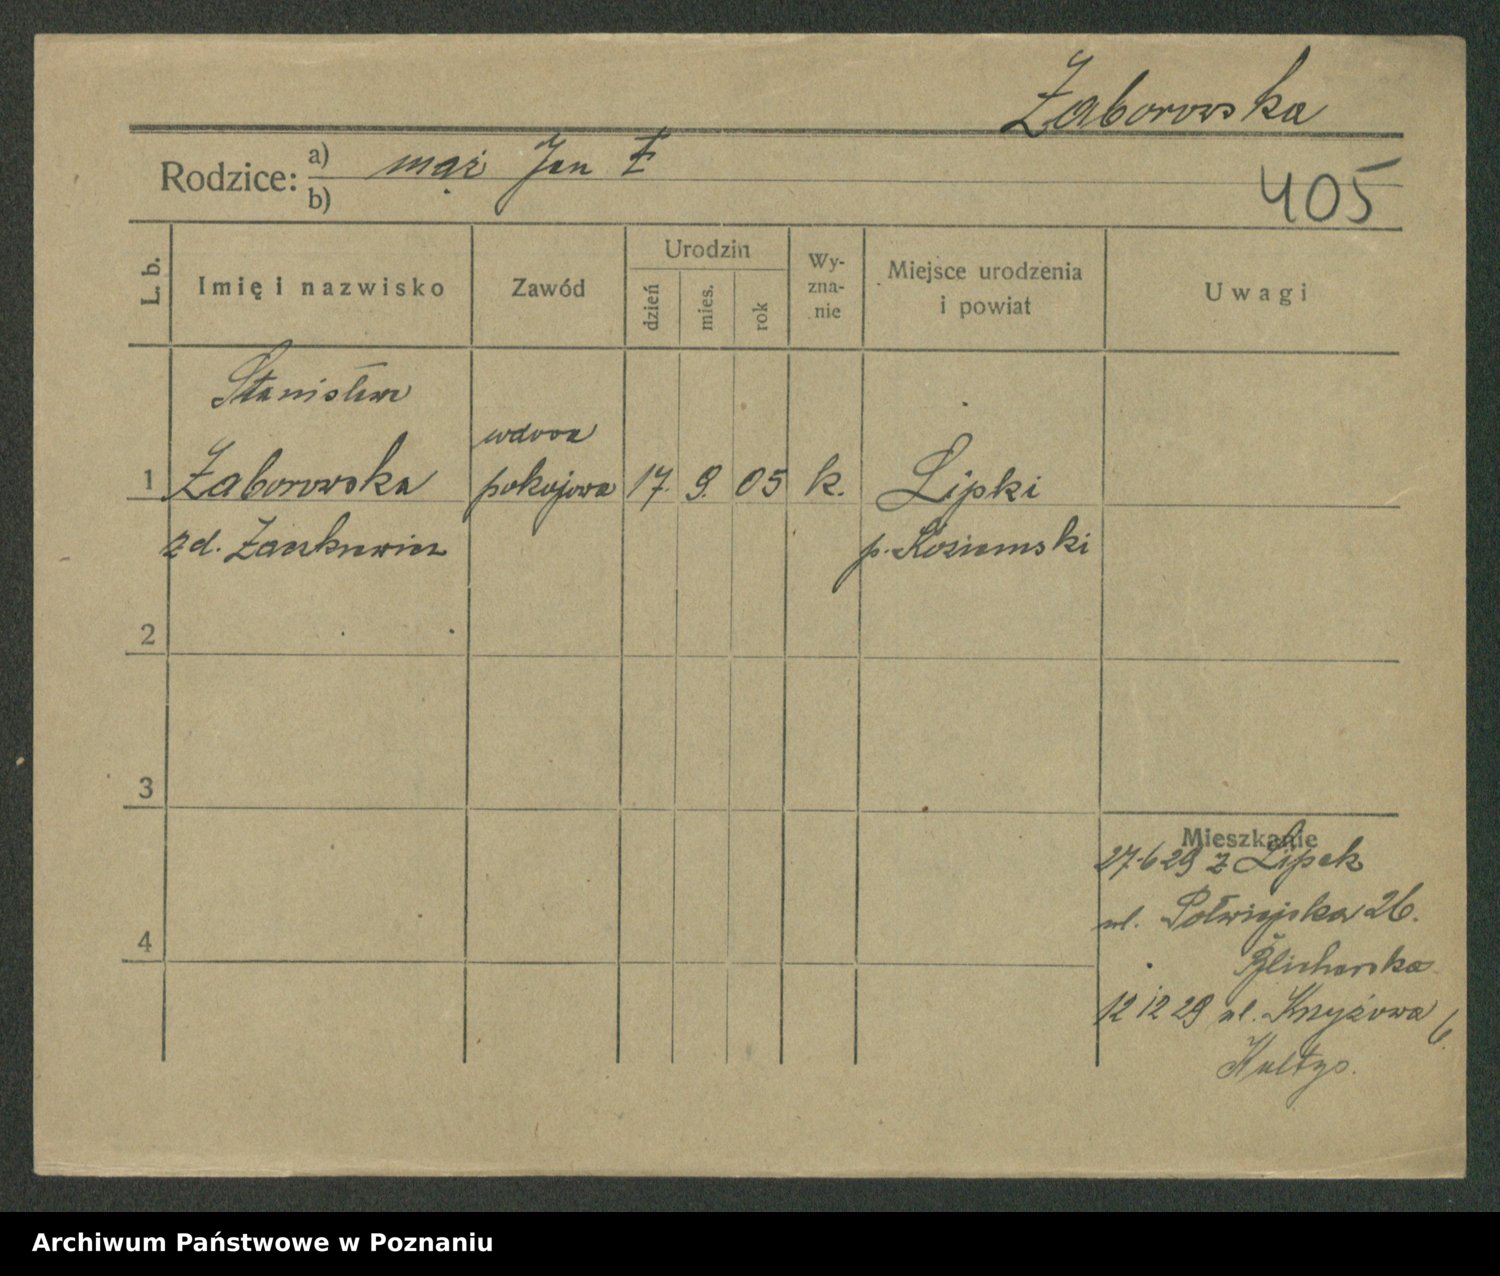 Zaborowska
Rodzice: a) mąż Jan
b)
405
L. b.
Imię i nazwisko
Zawód
Urodzin
dzień
mies.
rok
Wy-
zna-
nie
Miejsce urodzenia
i powiat
Uwagi
Stanisława
wdowa
1 Zaborowska pokojowa 17. 9. 05 k. Lipki
zd. p.
2
3
Mieszkanie
27.6 29 z Lipek
ul. Półwiejska 26.
4
12 12 29 ul. Krzyżowa 6.
Archiwum Państwowe w Poznaniu